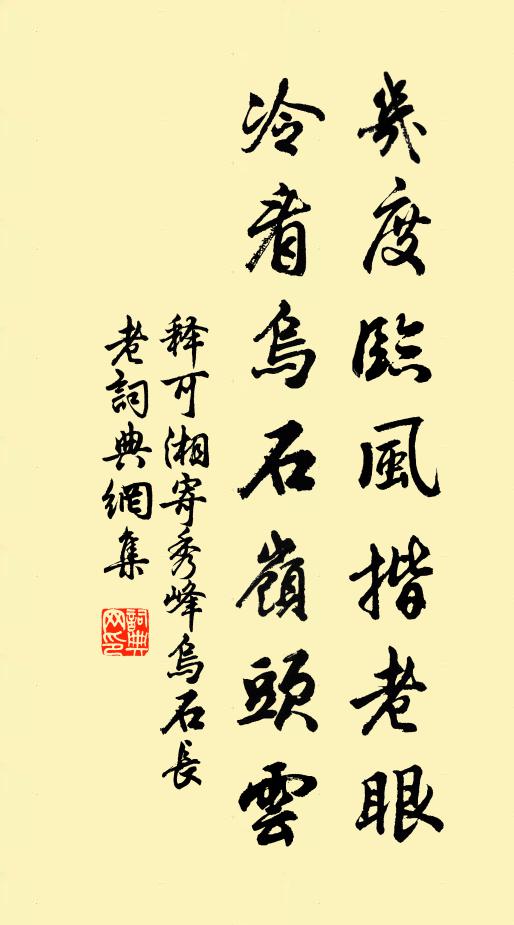 幾度臨風揩老眼
冷看烏石嶺頭雲
释可湘寄秀峰烏石長
老詞典網集
詞典网印